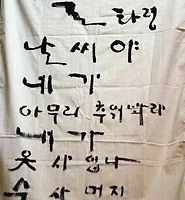 타령
날씨야
네가
아무리 추워봐라
내가
옷 사 입나
술 사 먹지